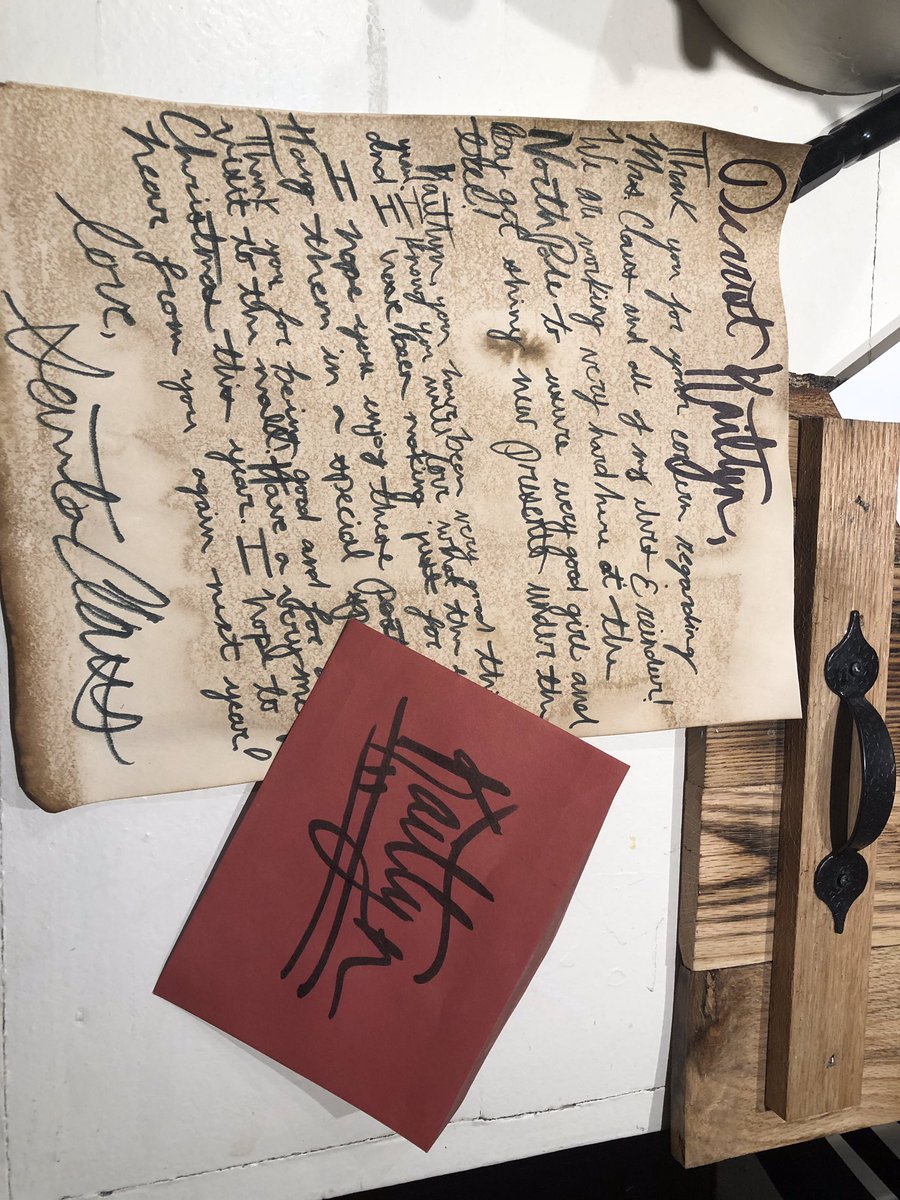 Dearest Kaitlyn,
Thank you for your concern regarding
Mrs. Claus and all of my elves & reindeer!
We are working very hard here at the
North Pole to ensure every good girl and
boy get shiny new presents under the
tree!
Kaitlyn you have been very good this
year. I know you will love what the
and I have been making just for
I hope you enjoy these
Hang them in a special
Thank you for being good and for a
visit to the mall. Have a very me
Christmas this year. I hope to
hear from you again next year!
Love,
Santa Claus
Kaitlyn